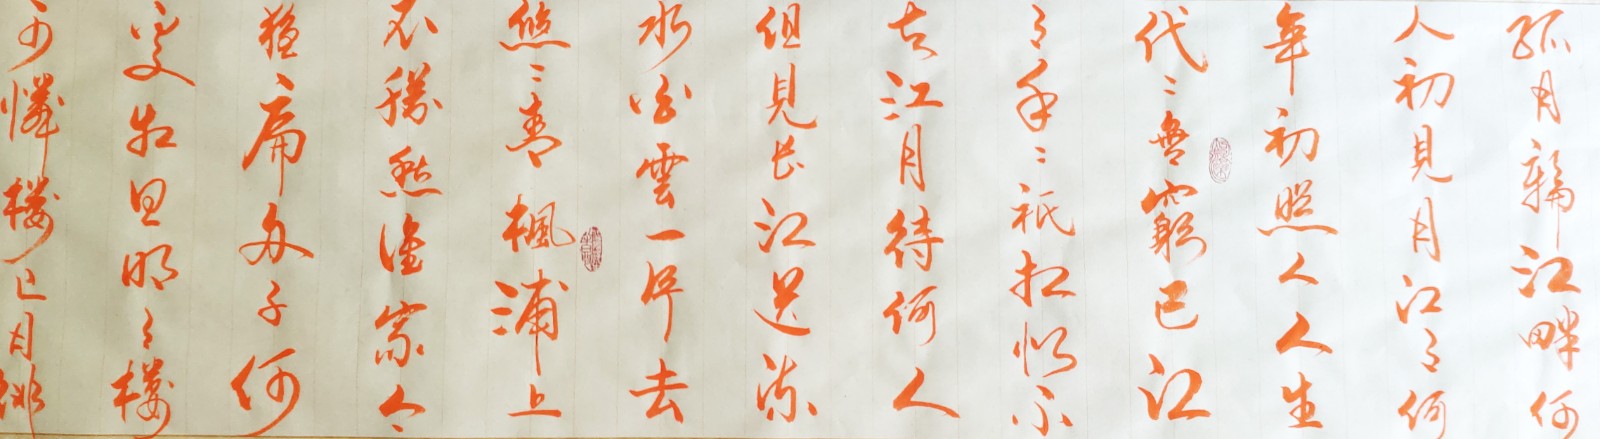 孤月輪江畔何
人初見月江月何
年初照人人生
代〻無窮已江
月年〻祇相似不
知江月待何人
但見長江送流
水白雲一片去
悠〻青楓浦上
不勝愁誰家今
夜扁舟子何
處相思明月樓
可憐樓上月徘